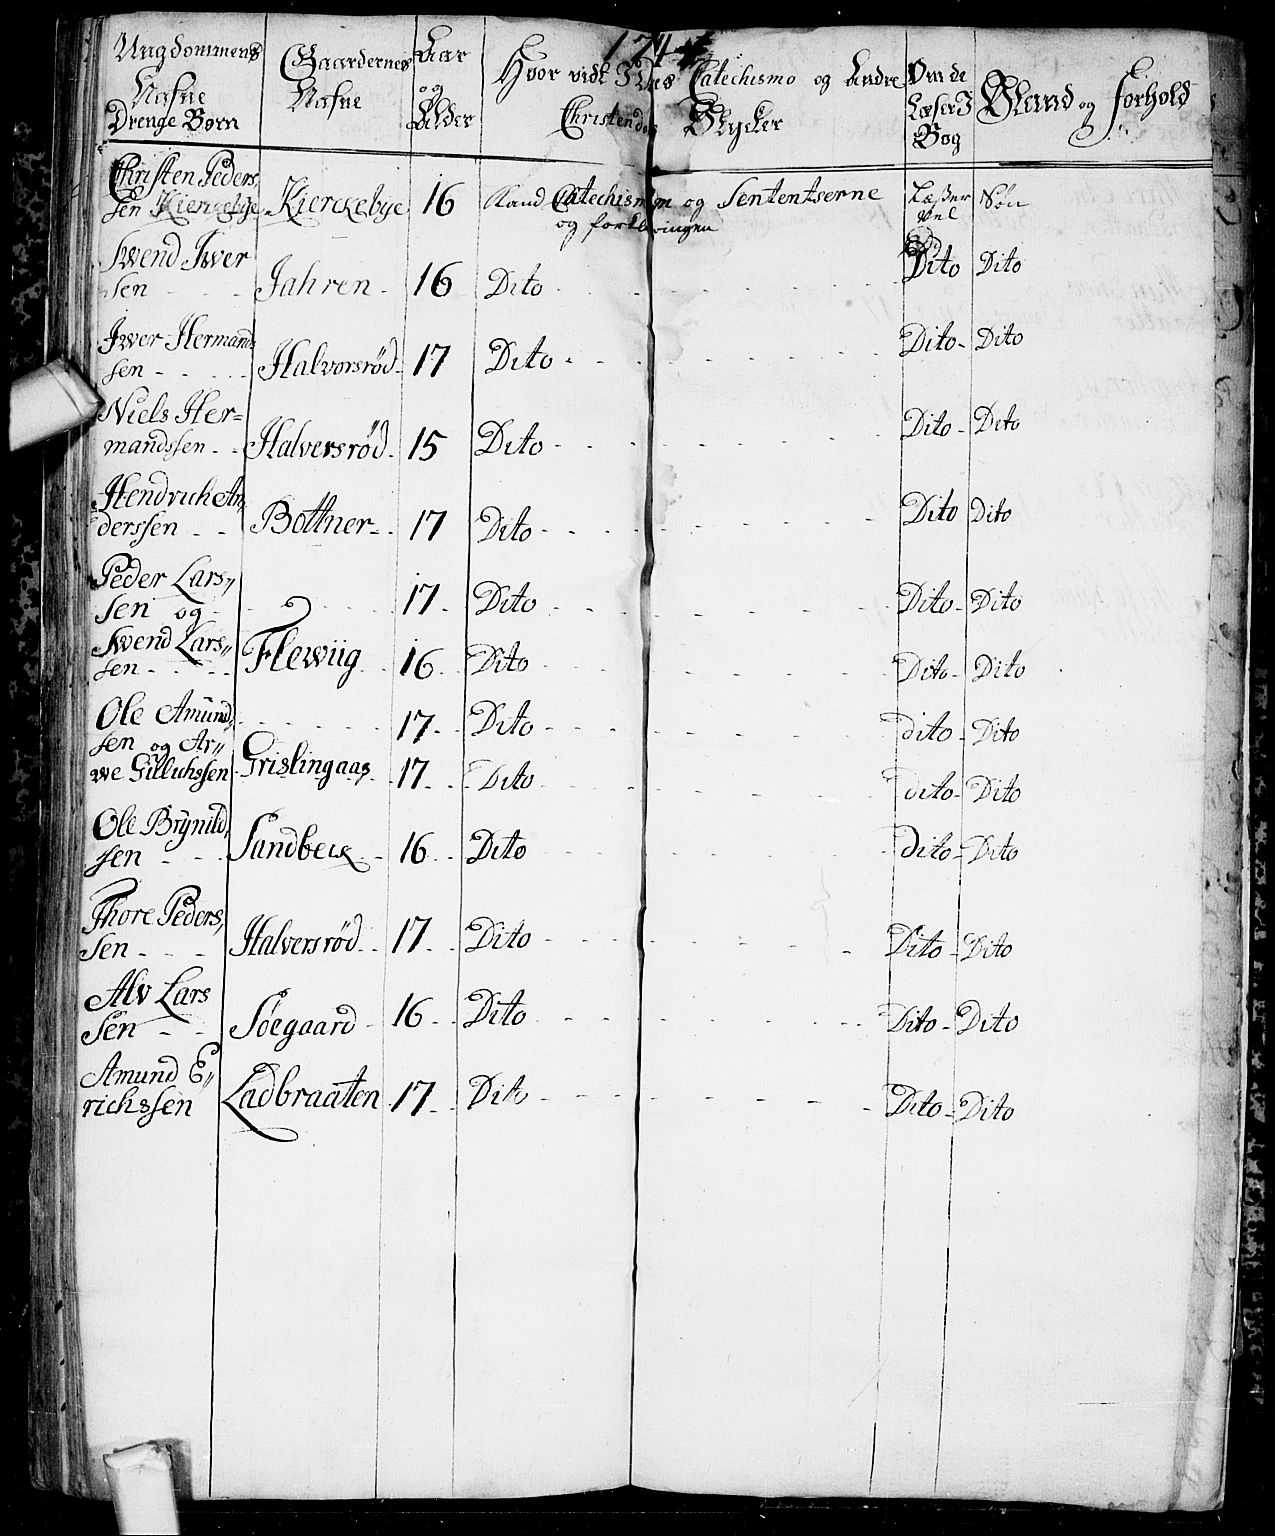 1744
Ungdommens Nafne Drenge Børn | Gaardernes Nafne | Aar og Alder | Hvor vidt I Des Catechismo og Andre Christendoms Stycker | Om de Læser I Bog | Stand og Forhold
Christen Peders,
sen Kierckebye | Kierckebye | 16 | Kand Catechismum og Sententserne | Læsser vel | Søn
og forklaringen
Swend Iwer
sen | Jahren | 16 | Dito | Dito | Dito
Iwer Hermand
sen | Halvorsrød | 17 | Dito | Dito | Dito
Niels Her=
mandssen | Halversrød | 15 | Dito | Dito | Dito
Hendrich An,
derssen | Bottner | 17 | Dito | Dito | Dito
Peder Lars,,
sen og | 17 | Dito | Dito | Dito
Swend Lars,,
sen | Flewiig | 16 | Dito | Dito | Dito
Ole Amund,
sen og Ar,, | 17 | Dito | dito | Dito
we Gullichssen | Grislingaas | 17 | Dito | dito | Dito
Ole Brynild,
sen | Sandbeck | 16 | Dito | dito | Dito
Thore Peders,
sen | Halversrød | 17 | Dito | Dito | Dito
Alv Lars
sen | Søegaard | 16 | Dito | Dito | Dito
Amund E,,
richssen | Ladbraaten | 17 | Dito | Dito | Dito